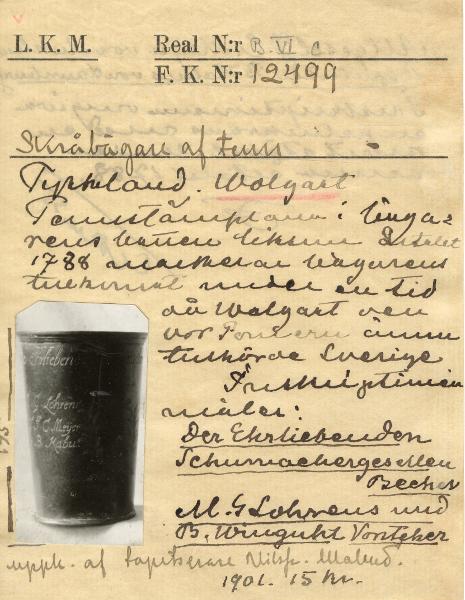 L. K. M.
Real N:r B. VI c
F. K. N:r 12499
Skråbägare af tenn
Tyskland. Wolgast
Tennstämplarna i bäga-
rens botten liksom årtalet
1788 markerar bägarens
tillkomst under en tid
då Wolgast den
vor Pomern ännu
tillhörde Sverige
Inskriptionen
måler:
Der Ehrliebenden
Schumachergesellen
Becher
M. G Lohrens und
B. Vorsteher
Ehrlieben
J. Lohrens
J. C. Meyer
B. Kabut
195
uppk. af tapetserare Nilss. Malmö.
1901. 15 kr.